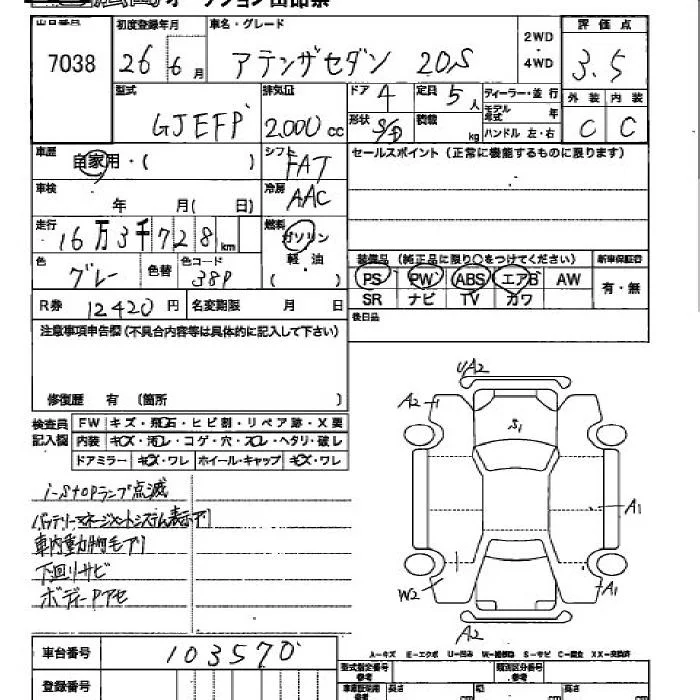 オークション出品票
出品番号 初度登録年月 車名・グレード 評価点
7038 26 6月 アテンザセダン 20S 2WD・4WD 3.5
型式 排気量 ドア 4 定員 5人 ディーラー・並行 外装 内装
GJEFP 2,000cc 形状 S/D 積載 kg モデル年式 年 C C
ハンドル 左・右
車歴 自家用・( ) シフト FAT セールスポイント(正常に機能するものに限ります)
車検 年 月( 日) 冷房 AAC
走行 16万3千728km 燃料 ガソリン
色 グレー 色替 色コード 38P 軽油 ( )
装備品(純正品に限り○をつけてください) 新車保証書
PS PW ABS エアB AW 有・無
SR ナビ TV カワ
R券 12420円 名変期限 月 日 後日品
注意事項申告欄(不具合内容等は具体的に記入して下さい)
修復歴 有 (箇所 )
検査員記入欄 FW キズ・飛石・ヒビ割・リペア跡・X要
内装 キズ・汚レ・コゲ・穴・スレ・ヘタリ・破レ
ドアミラー キズ・ワレ ホイール・キャップ キズ・ワレ
UA2
A2
S1
A1
W2
A1
A2
i-stopランプ点滅
バッテリーマネージメントシステム表示アリ
車内動物毛アリ
下回リサビ
ボディーPアセ
A-キズ E-エクボ U-凹み W-補修跡 S-サビ C-腐食 XX-交換済
車台番号 103570
型式指定番号 参考 類別区分番号 参考
登録番号 長さ cm 幅 cm 高さ